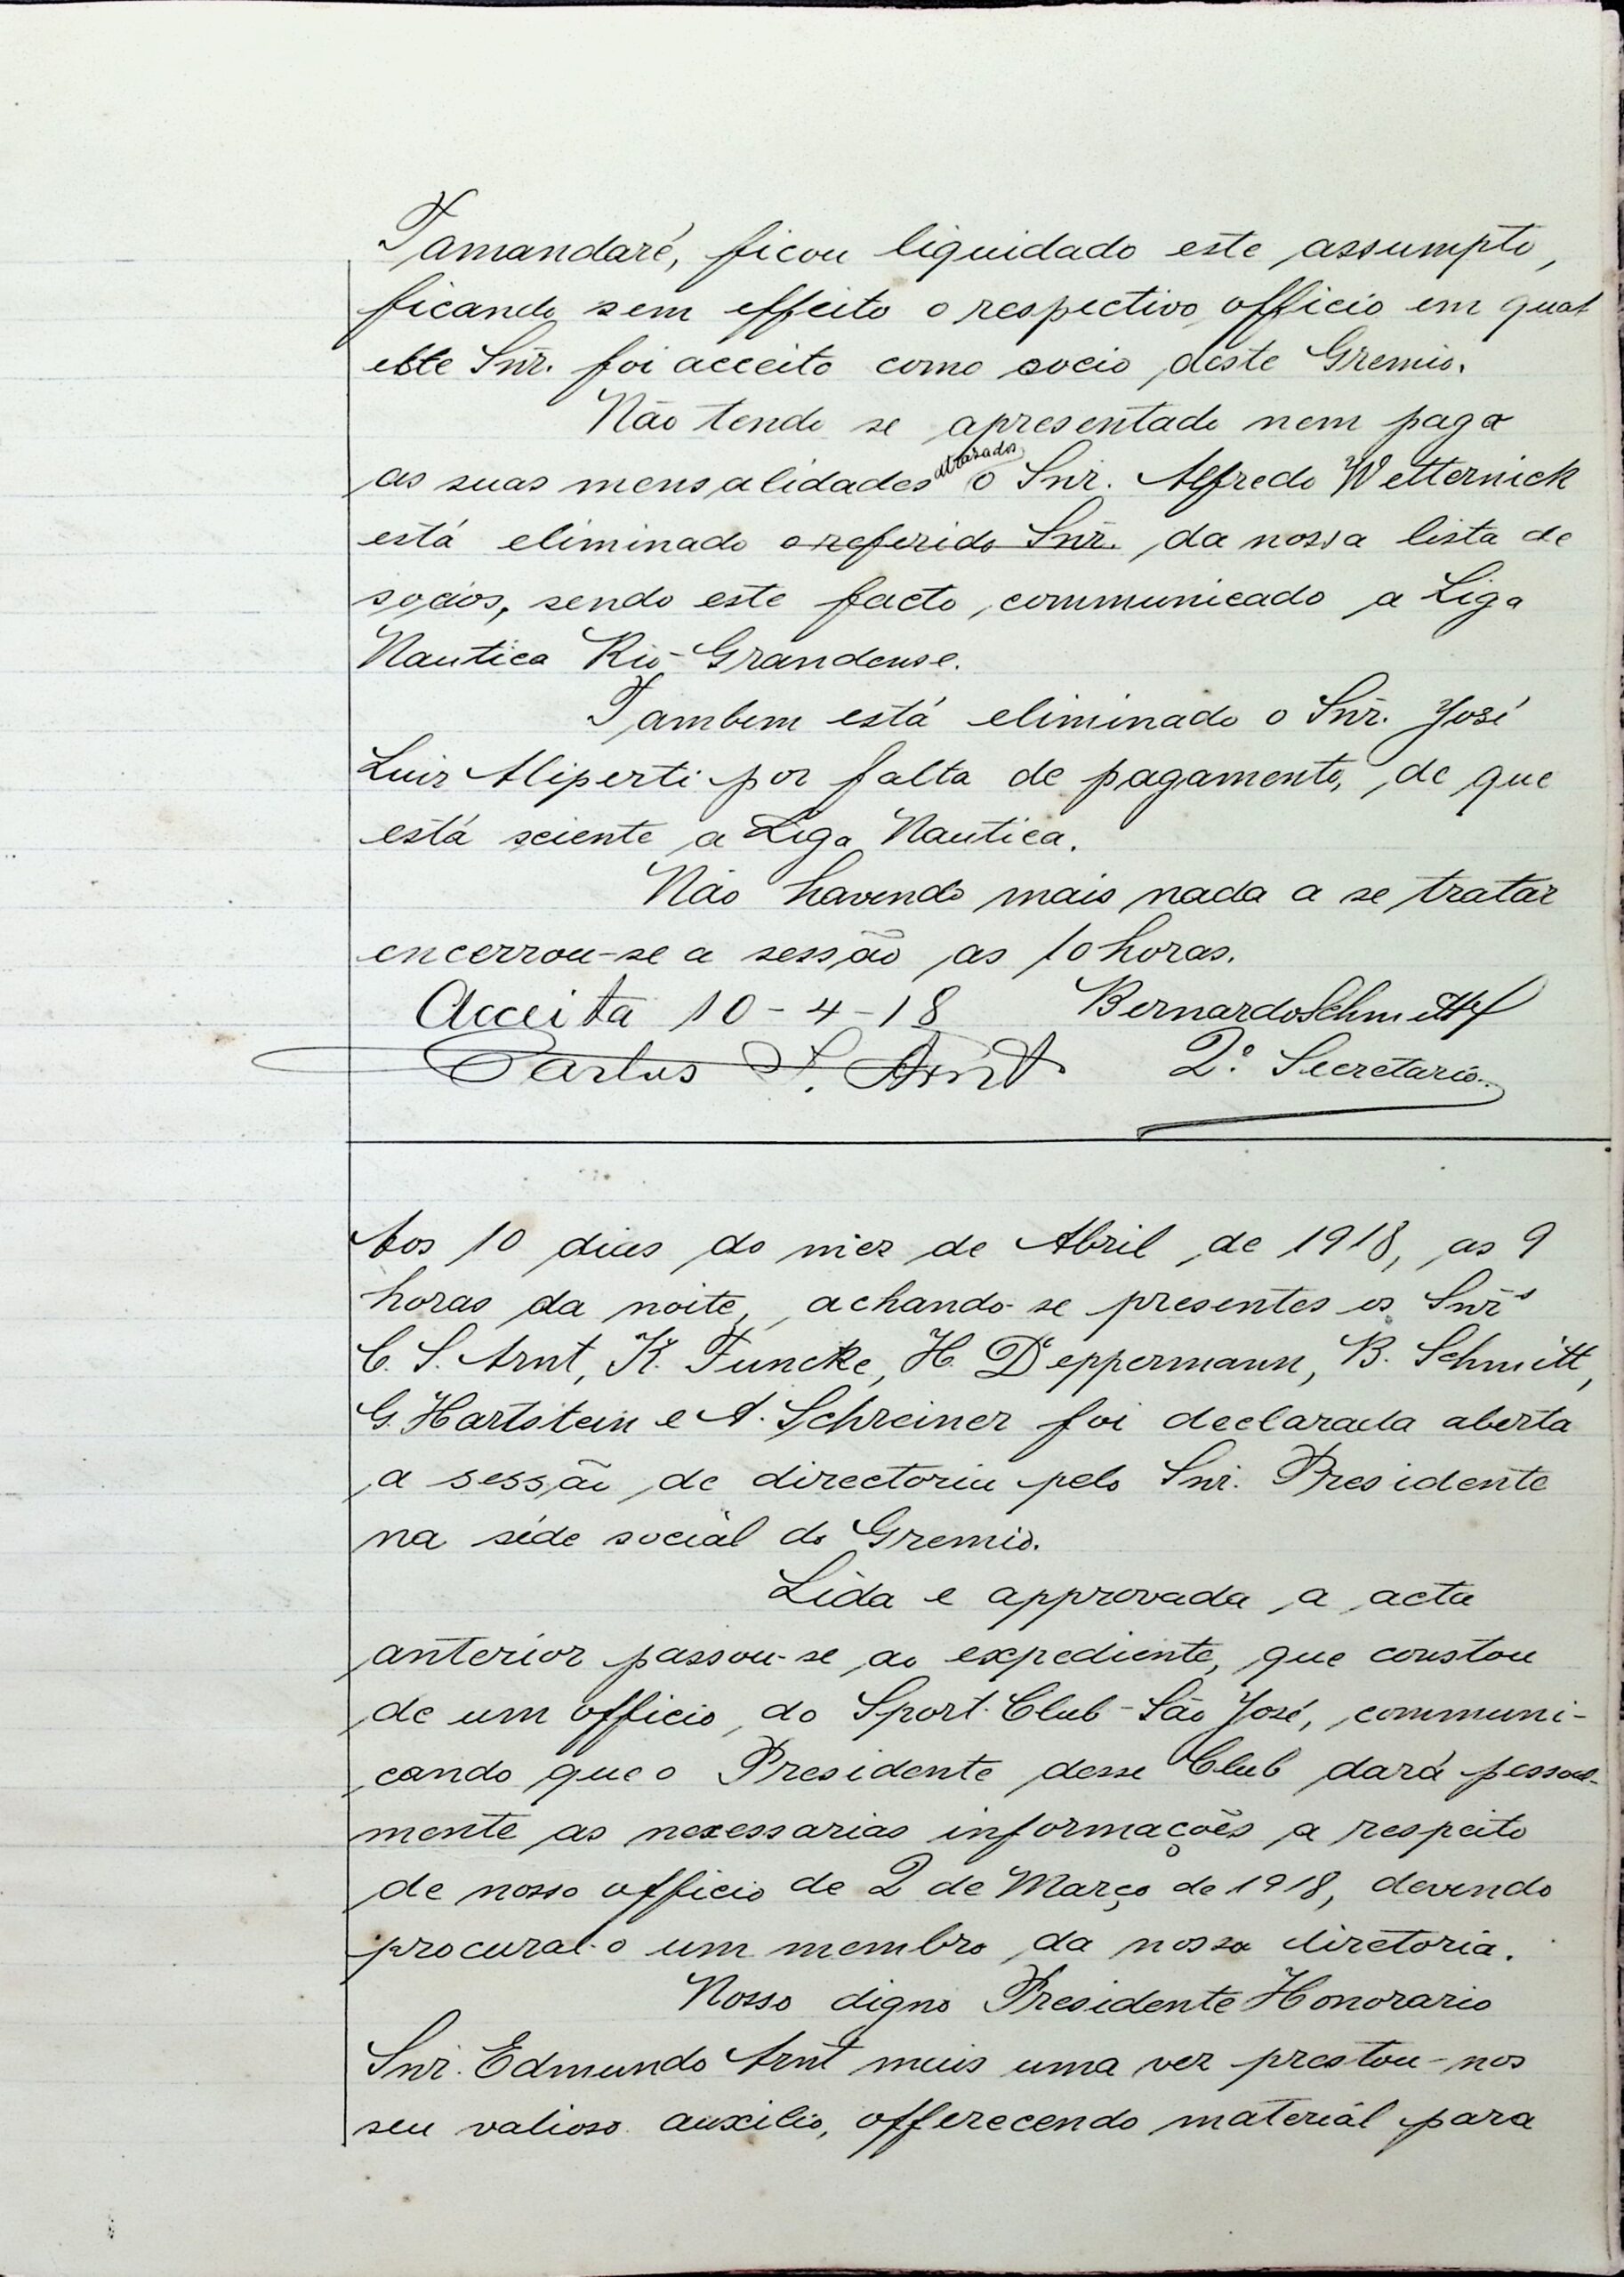 Tamandaré, ficou liquidado este assumpto,
ficando sem effeito o respectivo officio em qual
este Snr. foi acceito como socio deste Gremio.
Não tendo se apresentado nem pago
as suas mensalidades atrasados o Snr. Alfredo Wetternick
está eliminado o referido Snr. da nossa lista de
socios, sendo este facto communicado a Liga
Nautica Rio-Grandense.
Tambem está eliminado o Snr. José
Luiz Aliperti por falta de pagamento, de que
está sciente a Liga Nautica.
Não havendo mais nada a se tratar
encerrou-se a sessão as 10 horas.
Acceita 10-4-18 Bernardo Schmitt
Carlos S. Arnt 2º Secretario.
Aos 10 dias do mez de Abril de 1918, as 9
horas da noite, achando-se presentes os Snrs
C. S. Arnt, K. Funcke, H. Deppermann, B. Schmitt,
G. Hartstein e A. Schreiner foi declarada aberta
a sessão de directoria pelo Snr. Presidente
na séde social do Gremio.
Lida e approvada a acta
anterior passou-se ao expediente, que constou
de um officio do Sport-Club-São José, communi-
cando que o Presidente desse Club dará pessoal-
mente as necessarias informações a respeito
de nosso officio de 2 de Março de 1918, devendo
procural-o um membro da nossa diretoria.
Nosso digno Presidente Honorario
Snr. Edmundo Arnt mais uma vez prestou-nos
seu valioso auxilio, offerecendo material para